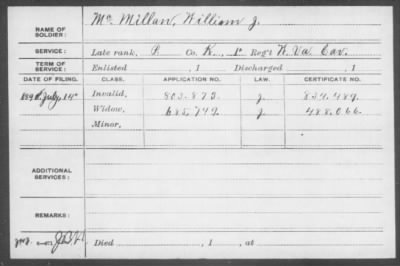 NAME OF SOLDIER: Mc Millan, William J.
SERVICE: Late rank, P Co. K, 1st Reg't W. Va. Cav.
TERM OF SERVICE: Enlisted , 1 Discharged , 1
DATE OF FILING. CLASS. APPLICATION NO. LAW. CERTIFICATE NO.
1890 July 14 Invalid, 803.873. J. 834.489.
Widow, 685,749. J. 488.066.
Minor,
ADDITIONAL SERVICES:
REMARKS:
Died , 1 , at